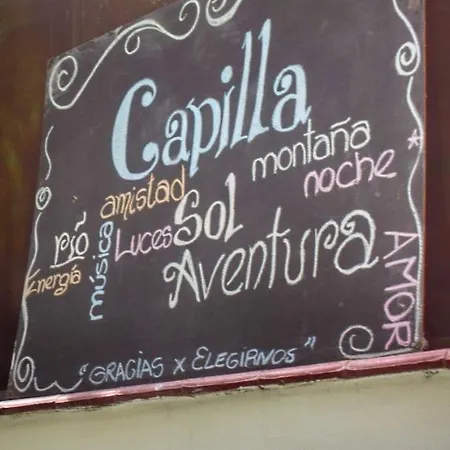 Capilla
montaña
noche
amistad
Sol
río
Luces
música
Energía
Aventura
AMOR
"GRACIAS x ELEGIRNOS"